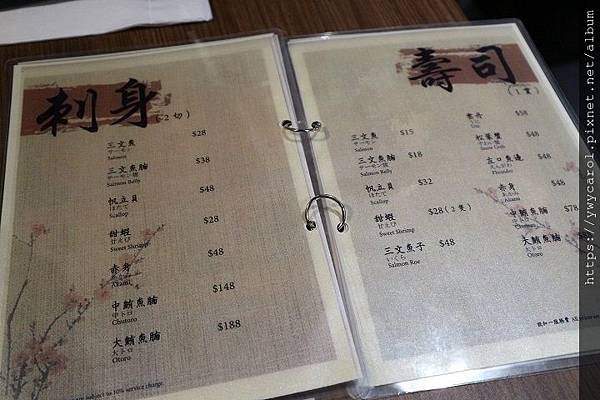 刺身
(2切)
三文魚 $28
サーモン
Salmon
三文魚腩 $38
サーモン腹
Salmon Belly
帆立貝 $48
ほたて
Scallop
甜蝦 $28
甘えび
Sweet Shrimp
赤身 $48
あかみ
Akami
中鮪魚腩 $148
中トロ
Chutoro
大鮪魚腩 $188
大トロ
Otoro
subject to 10% service charge.
壽司
(1貫)
三文魚 $15
サーモン
Salmon
三文魚腩 $18
サーモン腹
Salmon Belly
帆立貝 $32
ほたて
Scallop
甜蝦 $28(2隻)
甘えび
Sweet Shrimp
三文魚子 $48
いくら
Salmon Roe
雲丹 $58
うに
Uni
松葉蟹 $48
Snow Crab
左口魚邊 $48
えんがわ
赤身 $48
あかみ
Akami
中鮪魚腩 $78
中トロ
Chutoro
大鮪魚腩
大トロ
Otoro
設加一服務費
https://ywycarol.pixnet.net/album